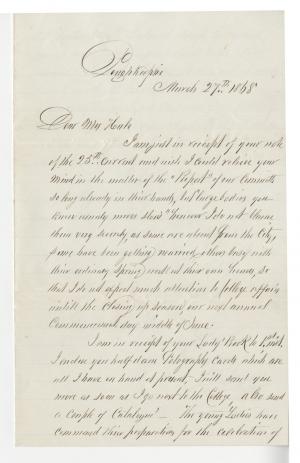 Poughkeepsie
March 27th 1868
Dear Mrs Hale
I am just in receipt of your note
of the 25th current and wish I could relieve your
Mind in the matter of the "Report" of our Committee
so long already in their hands, but large bodies you
know usually move slow. However I do not blame
them very severely, as some are about from the City,
some have been getting married, others busy with
their ordinary Spring work at their own homes, so
that I do not expect much attention to College affairs
until the closing up season, our next annual
Commencement day middle of June.
I am in receipt of your Lady's Book to
I enclose you half doz Photography Cards which are
all I have on hand at present, I will send you
more as soon as I go next to the College, also send
a Couple of Catalogues — The young Ladies have
commenced their preparation for the celebration of